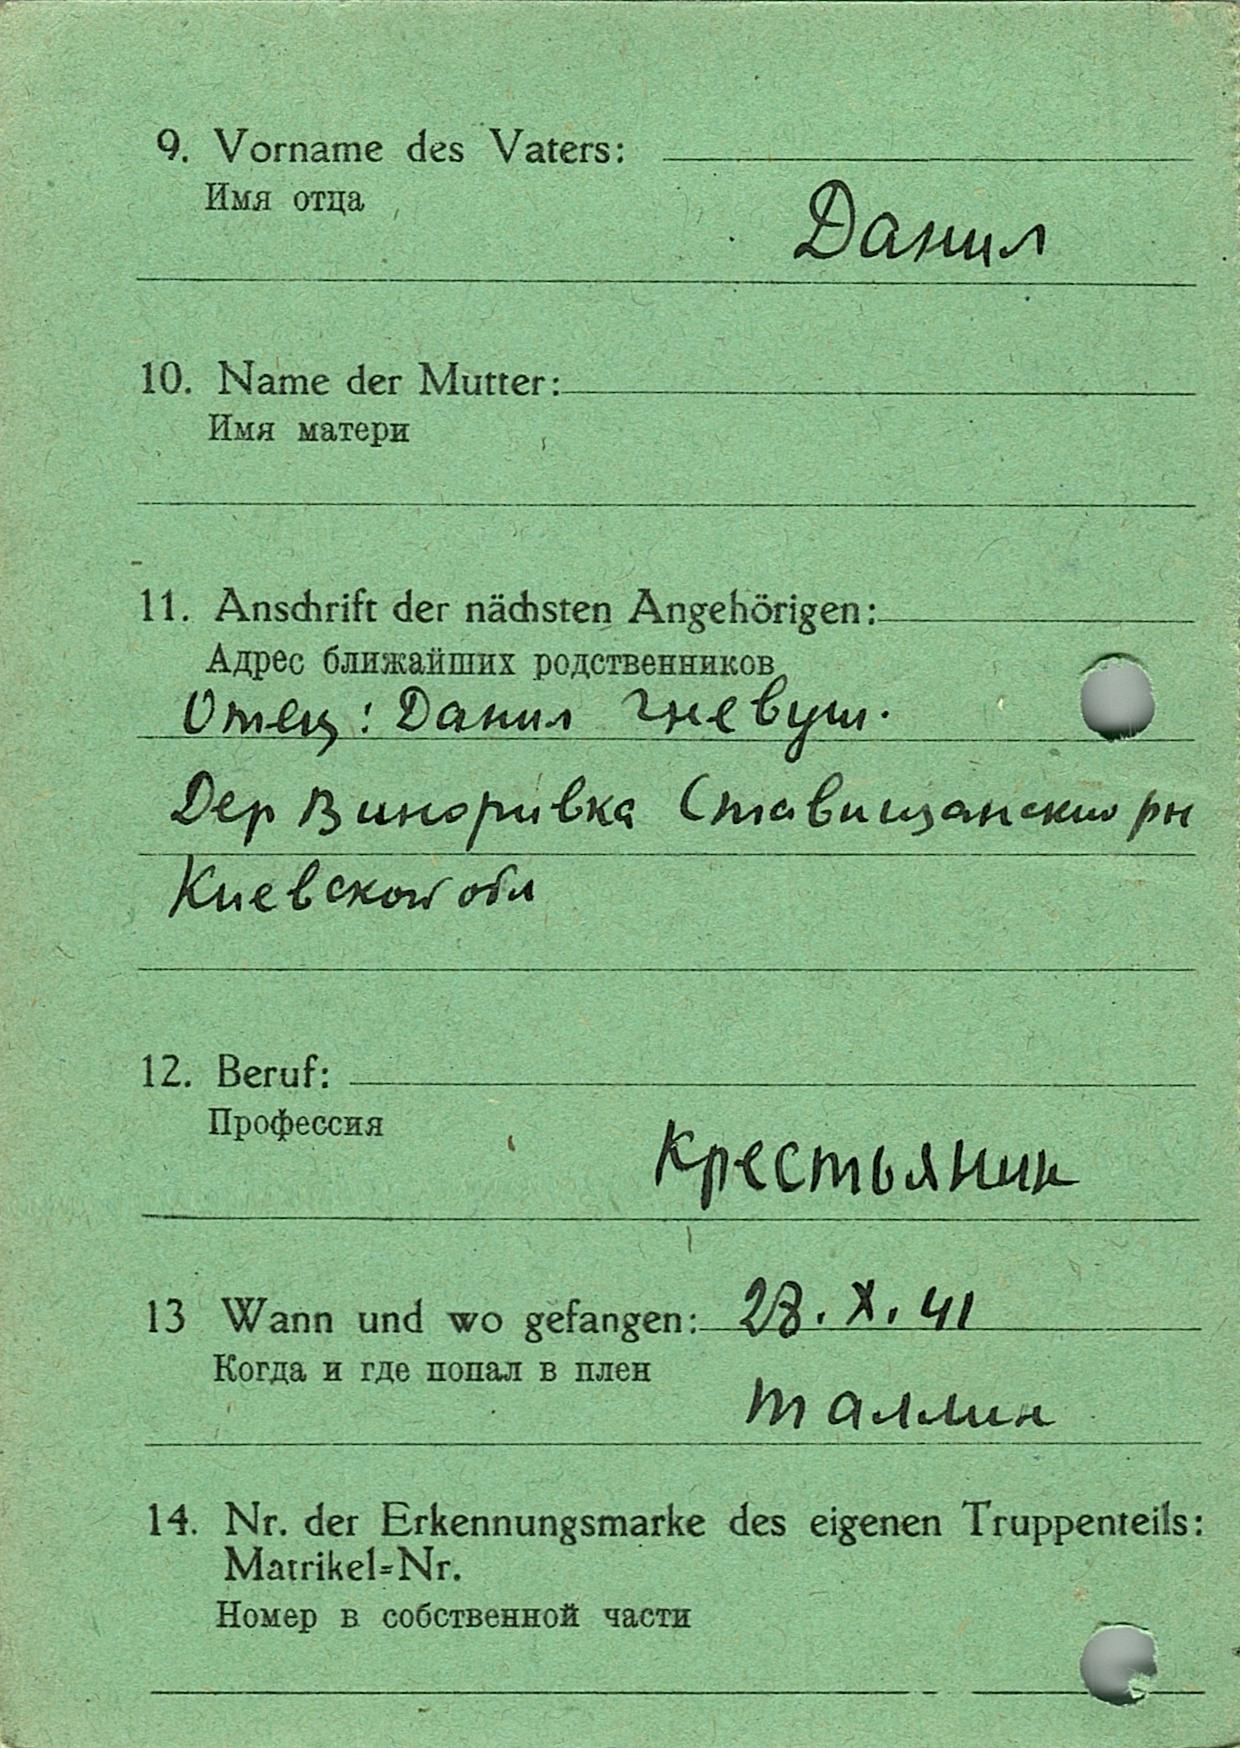 9. Vorname des Vaters:
Имя отца
Данил
10. Name der Mutter:
Имя матери
11. Anschrift der nächsten Angehörigen:
Адрес ближайших родственников
Отец: Данил Гневуш.
Дер Виноривка Ставищанский рн
Киевской обл
12. Beruf:
Профессия
Крестьянин
13 Wann und wo gefangen: 28. X. 41
Когда и где попал в плен
Таллин
14. Nr. der Erkennungsmarke des eigenen Truppenteils:
Matrikel=Nr.
Номер в собственной части